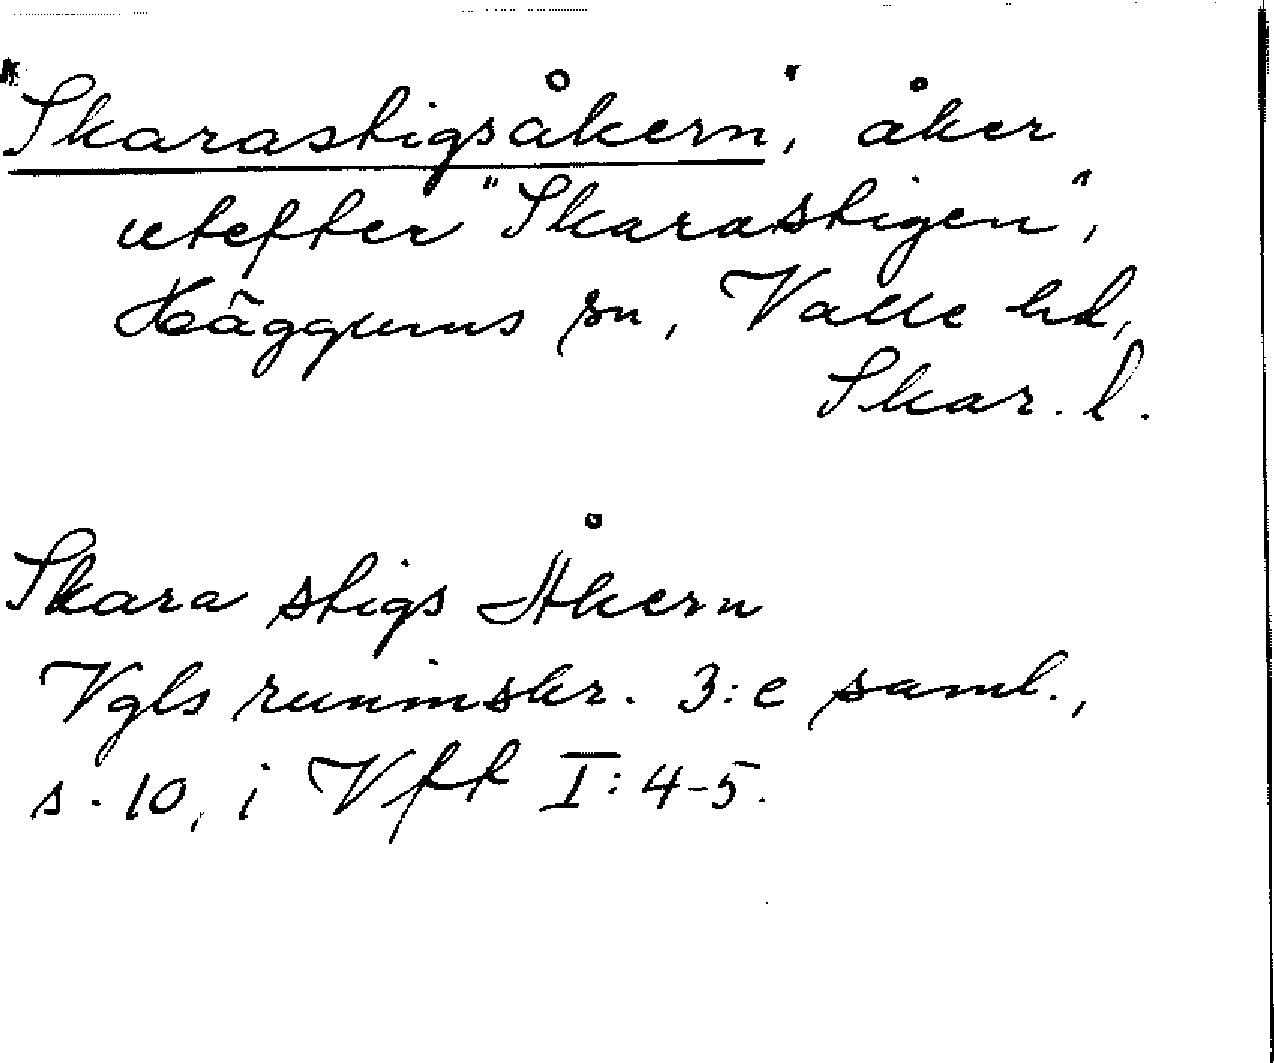 "Skarastigsåkern", åker
utefter "Skarastigen",
Häggums sn, Valle hd,
Skar. l.
Skara stigs Åkern
Vgls runinskr. 3:e saml.,
s. 10, i Vfft I: 4-5.